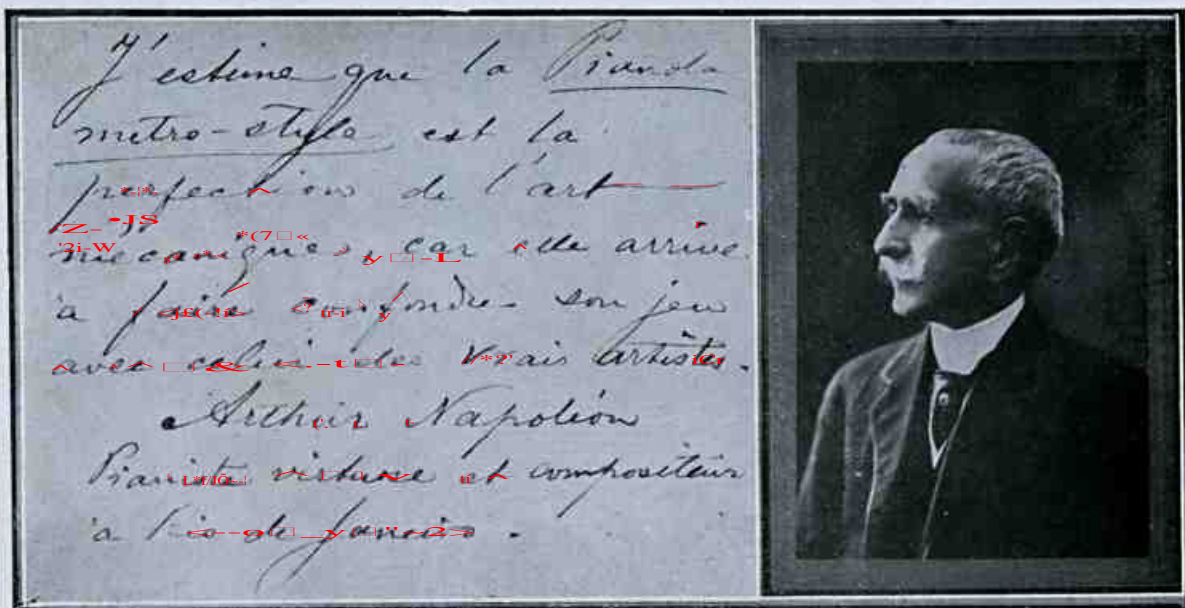 J'estime que la Pianola
metro-style est la
perfection de l'art
mécanique, car elle arrive
à faire confondre son jeu
avec celui des vrais artistes.
Arthur Napoléon
Pianiste virtuose et compositeur
à Rio de Janeiro.